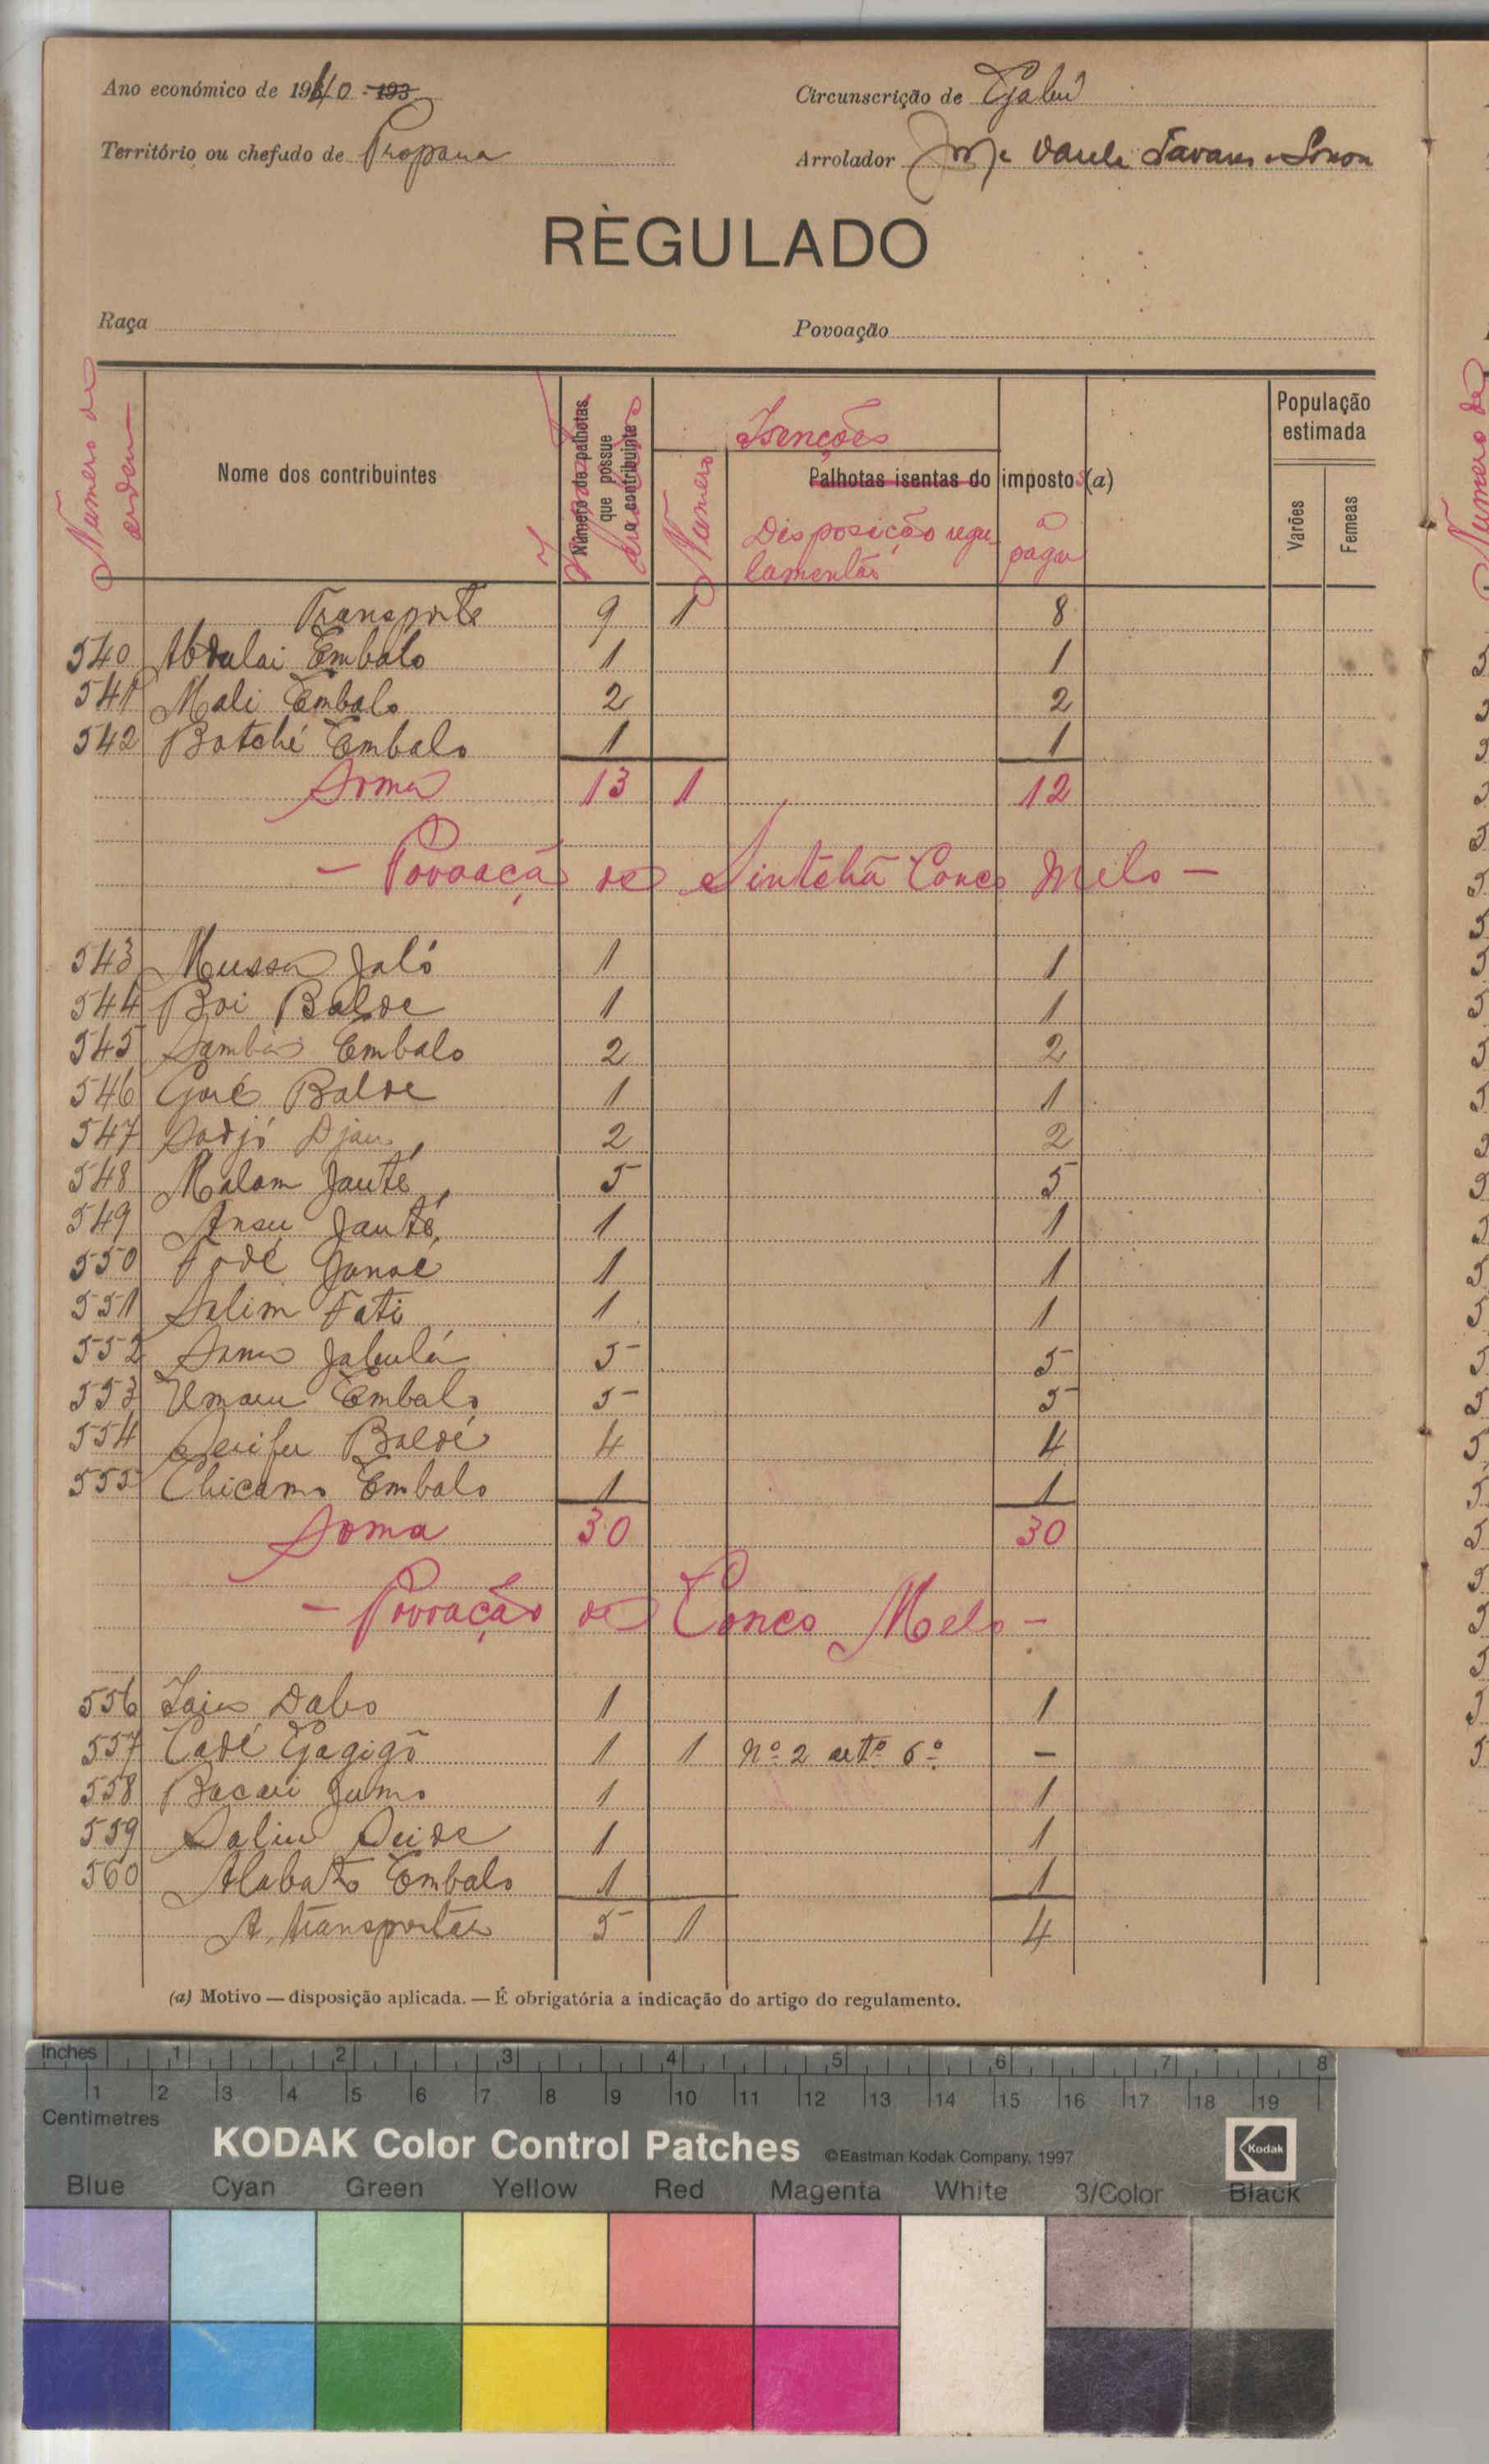 Ano económico de 1940 - 193
Circunscrição de Gabú
Território ou chefado de Propana
Arrolador Tavares
RÈGULADO
Raça
Povoação
Numero de ordem
Nome dos contribuintes
Número de palhotas que possue o contribuinte
Isenções
Numero
Palhotas isentas do imposto (a)
Disposição regulamentar
a pagar
População estimada
Varões
Femeas
Transporte 9 1 8
540 Abdulai Embalo 1 1
541 Mali Embalo 2 2
542 Batché Embalo 1 1
Soma 13 1 12
- Povoação de Sintchã Conco Melo -
543 Mussa Jaló 1 1
544 Boi Balde 1 1
545 Samba Embalo 2 2
546 Goré Balde 1 1
547 Sadjó Djau 2 2
548 Malam Janté 5 5
549 Ansu Janté 1 1
550 Fodé Jana 1 1
551 Salim Fati 1 1
552 Sana Jabulá 5 5
553 Umaru Embalo 5 5
554 Serifu Baldé 4 4
555 Chicamo Embalo 1 1
Soma 30 30
- Povoação de Conco Melo -
556 Dabo 1 1
557 Cadé Gagigõ 1 1 nº 2 artº 6º -
558 Bacari Jumo 1 1
559 Saliu Seide 1 1
560 Alabato Embalo 1 1
A transportar 5 1 4
(a) Motivo — disposição aplicada. — É obrigatória a indicação do artigo do regulamento.
Inches 1 2 3 4 5 6 7 8
1 2 3 4 5 6 7 8 9 10 11 12 13 14 15 16 17 18 19
Centimetres
KODAK Color Control Patches ©Eastman Kodak Company, 1997 Kodak
Blue Cyan Green Yellow Red Magenta White 3/Color Black